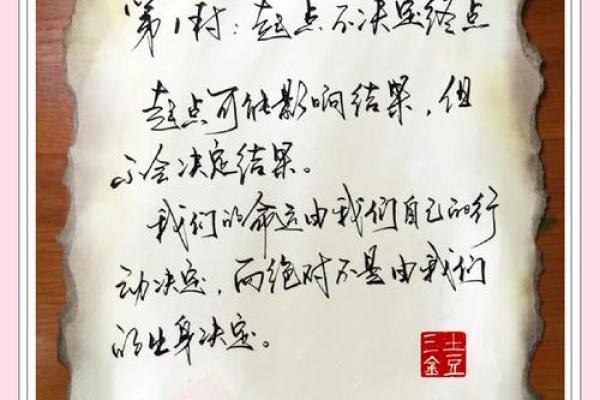 第1封：起点不决定终点
起点可能影响结果，但
不会决定结果。
我们的命运由我们自己的行
动决定，而绝对不是由我们
的出身决定。
土豆
三金